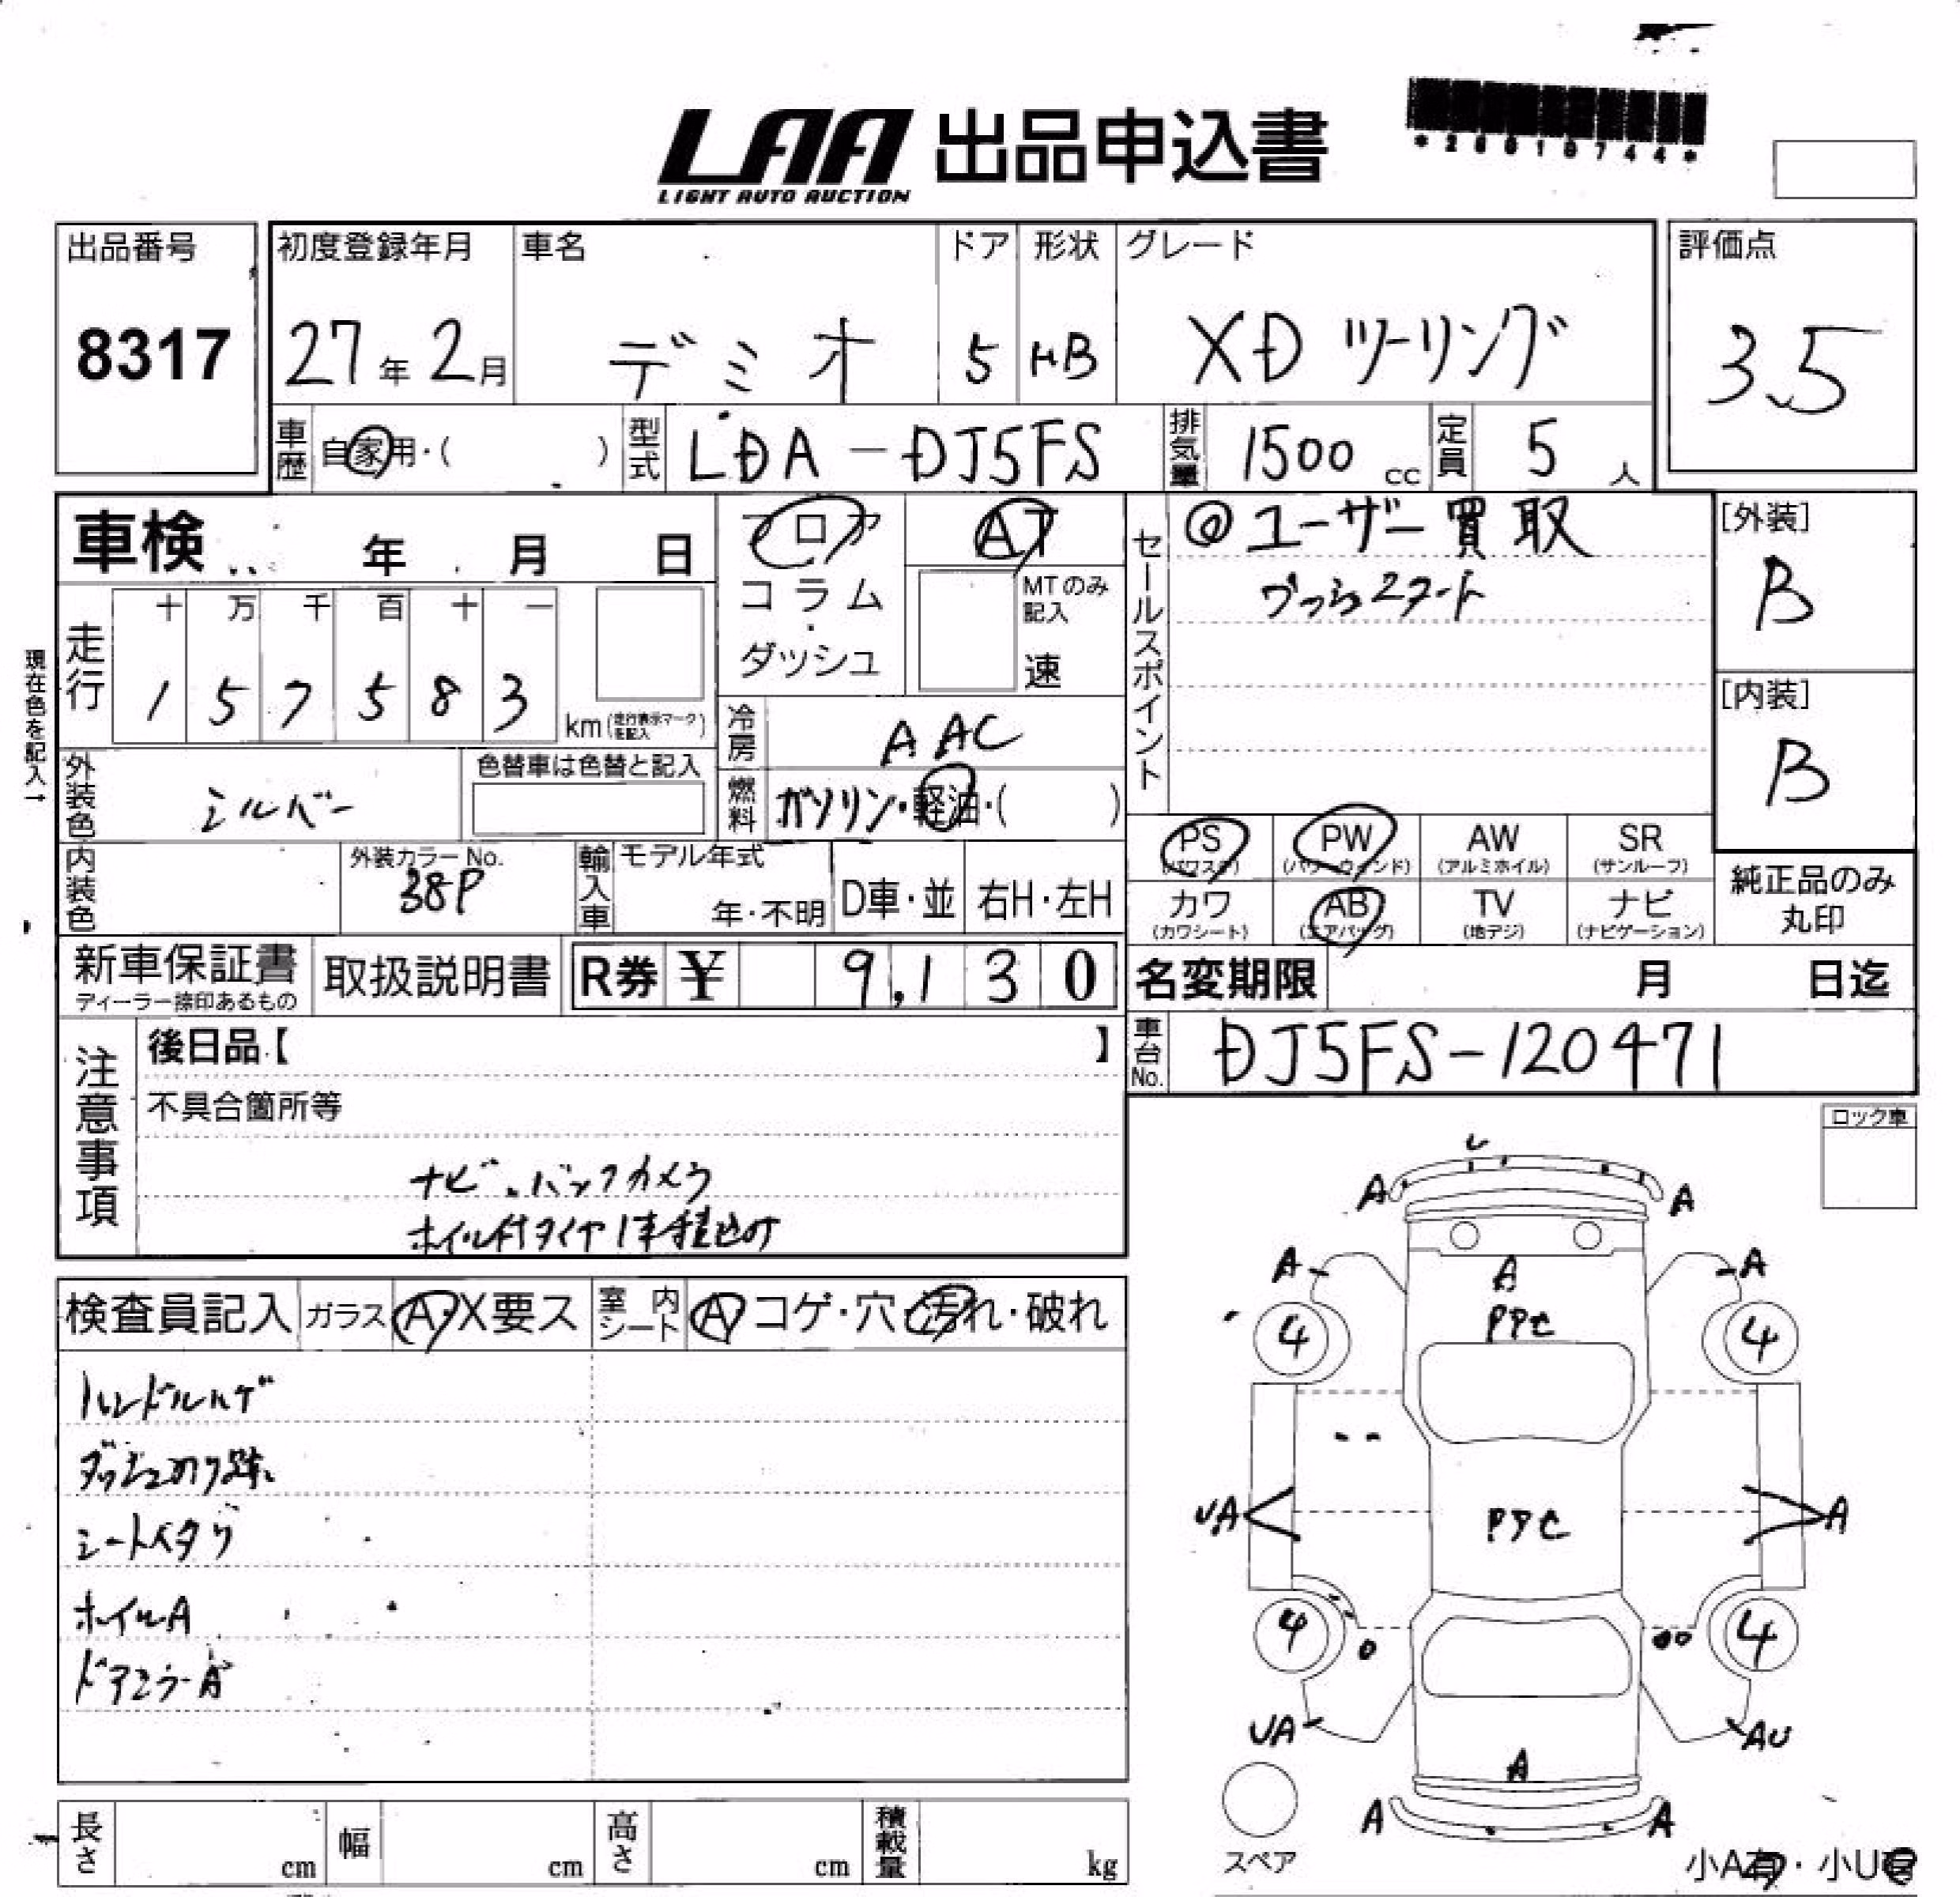 LAA 出品申込書
LIGHT AUTO AUCTION
*28010744*
出品番号
8317
初度登録年月 車名 ドア 形状 グレード
27年 2月 デミオ 5 HB XD ツーリング
評価点
3.5
車歴 自家用・( ) 型式 LDA-DJ5FS 排気量 1500 cc 定員 5 人
車検 年 月 日
フロア AT
コラム・ダッシュ
MTのみ記入
速
セールスポイント
@ユーザー買取
プッシュスタート
[外装]
B
[内装]
B
現在色を記入→
走行 十 万 千 百 十 一
1 5 7 5 8 3 km (走行表示マークを記入)
冷房 AAC
外装色 シルバー 色替車は色替と記入
燃料 ガソリン・軽油・( )
内装色 外装カラーNo. 38P
輸入車 モデル年式 年・不明 D車・並 右H・左H
PS (パワステ) PW (パワーウィンド) AW (アルミホイル) SR (サンルーフ)
カワ (カワシート) AB (エアバッグ) TV (地デジ) ナビ (ナビゲーション)
純正品のみ丸印
新車保証書 ディーラー捺印あるもの 取扱説明書 R券 ¥ 9,130
名変期限 月 日迄
車台No. DJ5FS-120471
注意事項
後日品【 】
不具合箇所等
ナビ、バックカメラ
ホイル付タイヤ1本積込み
ロック車
検査員記入 ガラス A・X要ス 室内シート A・コゲ・穴・汚れ・破れ
ハンドルハゲ
ダッシュノリ跡
シートヘタリ
ホイルA
ドアミラーA
A A
A A
A
PPC
4 4
UA PPC A
4 4
UA AU
A
A A
スペア
小A有・小U有
長さ cm 幅 cm 高さ cm 積載量 kg